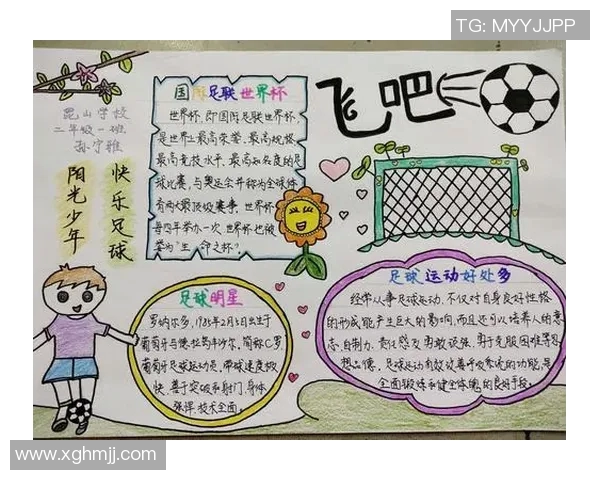 TG: MYYJJPP
飞吧
昆山学校
二年级一班
孙宁雅
阳光少年
快乐足球
国际足联世界杯
世界杯,即国际足联世界杯,
是世界上最高荣誉、最高规格、
最高竞技水平、最高知名度的足
球比赛,与奥运会并称为全球体
育两大最顶级赛事。世界杯
每四年举办一次,世界杯也被
誉为“生命之杯”
足球明星
罗纳尔多,1985年2月5日出生于
葡萄牙马德拉岛丰沙尔,简称C罗
葡萄牙足球运动员,带球速度极
快,善于突破和射门,身体
强悍,技术全面。
足球运动好处多
经常从事足球运动,不仅对自身良好性格
的形成能产生巨大的影响,而且还可以培养人的意
志,自制力,责任感及勇敢顽强、勇于克服困难等思
想品德。足球运动有效改善呼吸系统的功能,是
全面锻炼和健全体魄的良好手段。
www.xghmjj.com